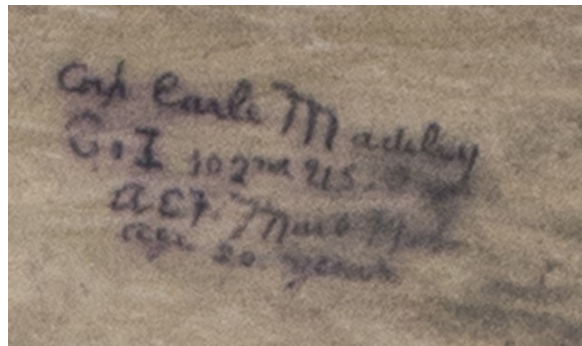 Corp Earle Madeley
Co. I 102nd U.S.
AEF
age 20 years